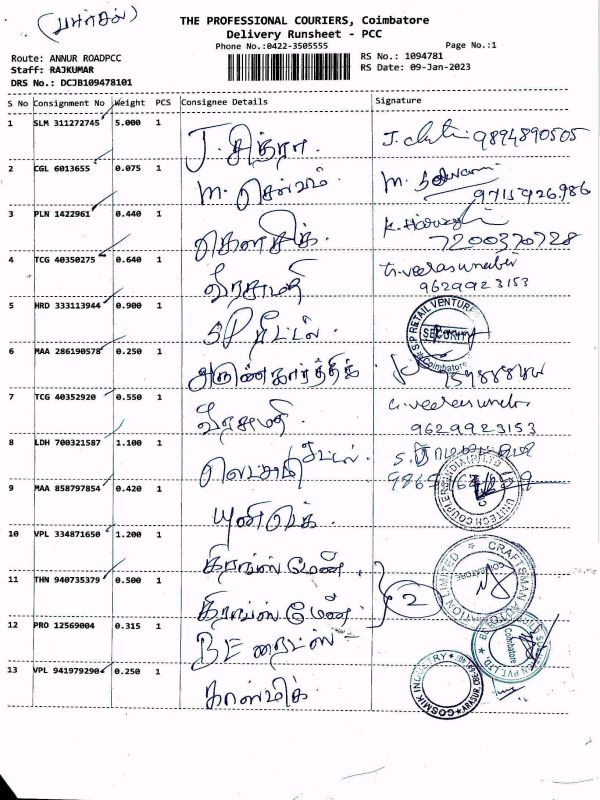 (பார்சல்)
THE PROFESSIONAL COURIERS, Coimbatore
Delivery Runsheet - PCC
Phone No.:0422-3505555
Page No.:1
Route: ANNUR ROADPCC
RS No.: 1094781
Staff: RAJKUMAR
RS Date: 09-Jan-2023
DRS No.: DCJB109478101
S No Consignment No Weight PCS Consignee Details Signature
1 SLM 311272745 5.000 1 J. சித்ரா. 9894890505
2 CGL 6013655 0.075 1 M. செல்வம். M. 9715926986
3 PLN 1422961 0.440 1 கௌசிக். K. 7200370728
4 TCG 40350275 0.640 1 வீரசாமி 9629923153
5 HRD 333113944 0.900 1 SP ரீட்டல். S.P RETAIL VENTURE SECURITY Coimbatore
6 MAA 286190578 0.250 1 அருண்கார்த்திக்
7 TCG 40352920 0.550 1 வீரசாமி. 9629923153
8 LDH 700321587 1.100 1
9 MAA 858797854 0.420 1 யுனிடெக். UNITECH COUPLERS INDIA (P) LTD
10 VPL 334871650 1.200 1 கிராப்ஸ் மேன்.
11 THN 940735379 0.500 1 கிராப்ஸ் மேன். 2 CRAFTSMAN AUTOMATION LIMITED COIMBATORE
12 PRO 12569004 0.315 1 Coimbatore PVT.LTD.
13 VPL 941979290 0.250 1 காஸ்மிக் COSMIK INDUSTRY